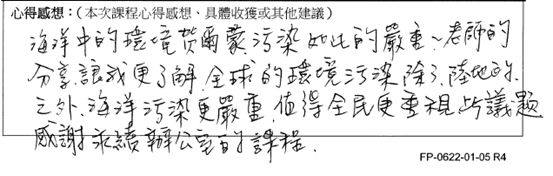 心得感想：(本次課程心得感想、具體收獲或其他建議)
海洋中的環境賀爾蒙污染如此的嚴重~老師的
分享讓我更了解全球的環境污染除了陸地的
之外,海洋污染更嚴重,值得全民更重視此議題
感謝永續辦公室的課程.
FP-0622-01-05 R4